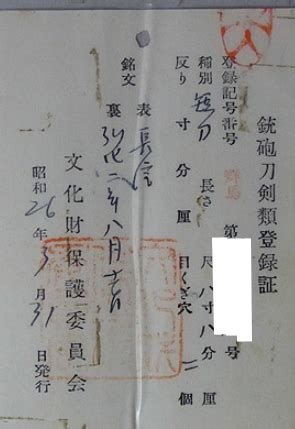 銃砲刀剣類登録証
登録記号番号 群馬 第 号
種別 短刀 長さ 尺八寸八分 厘
反り 寸 分 厘 目くぎ穴 二 個
銘文 表 長信
裏 弘化二年八月 日
文化財保護委員会
昭和26年3月31日発行